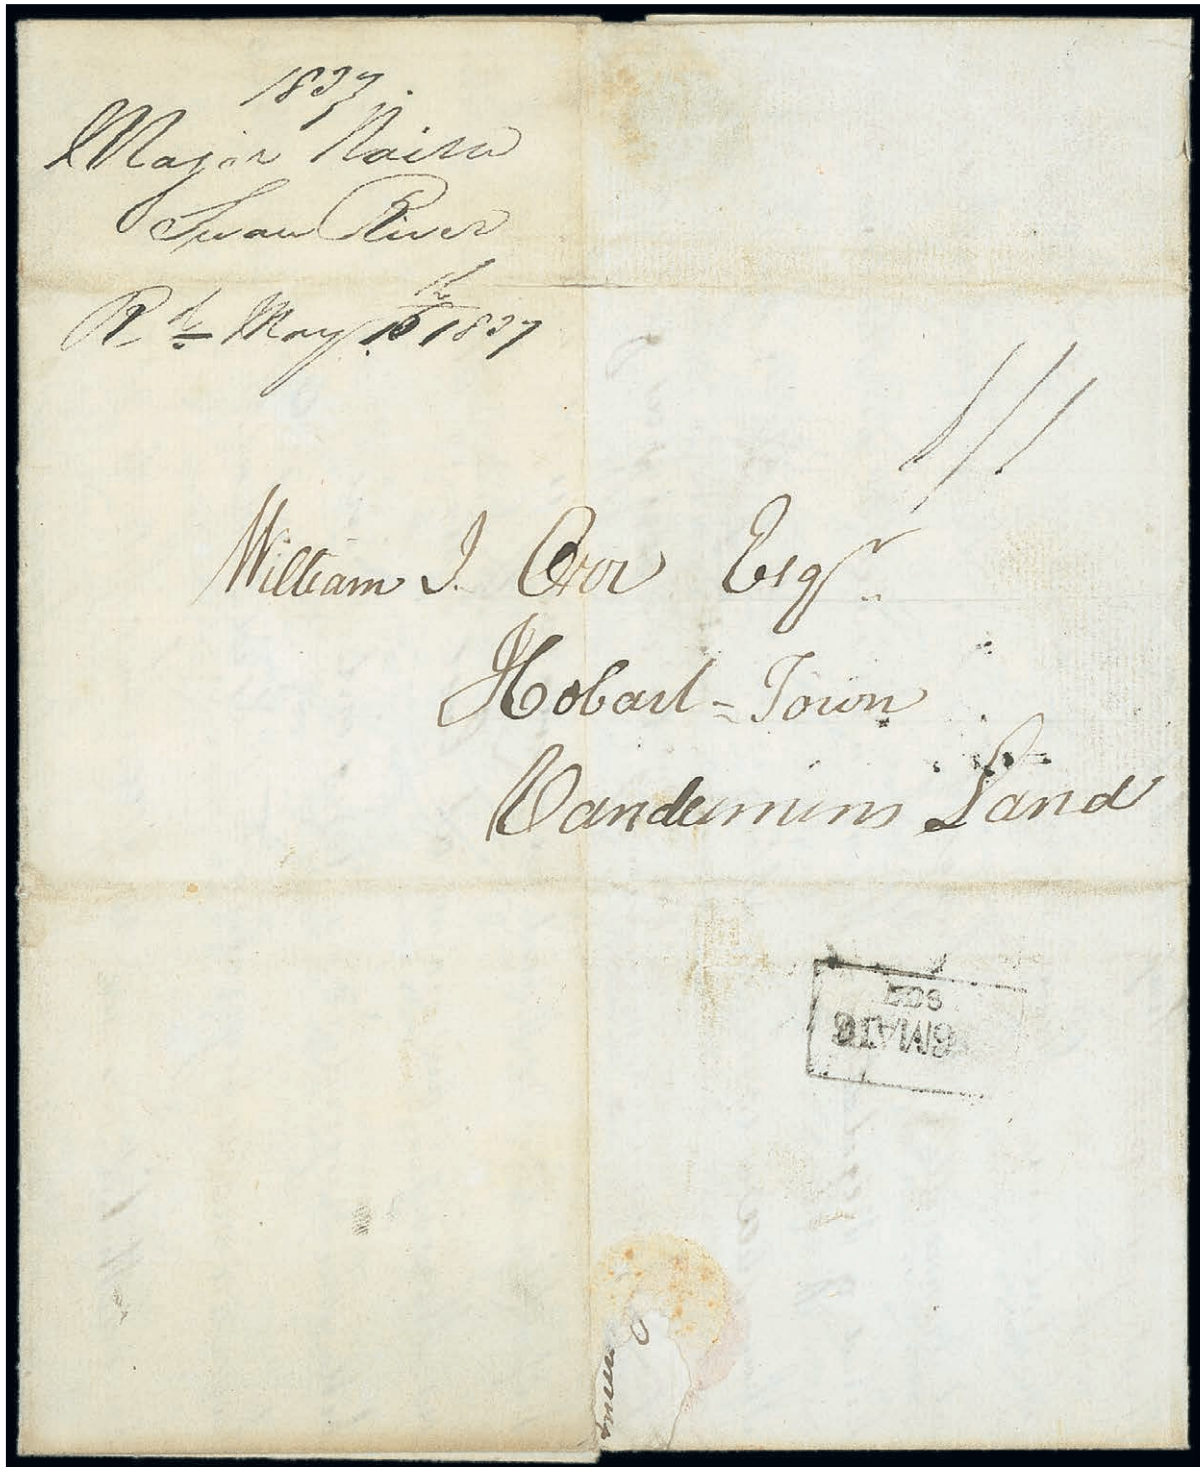 1837.
Major Nairn
Swan River
Rd. May 10th 1837
William J. Orr Esqr.
Hobart-Town
Vandemins Land